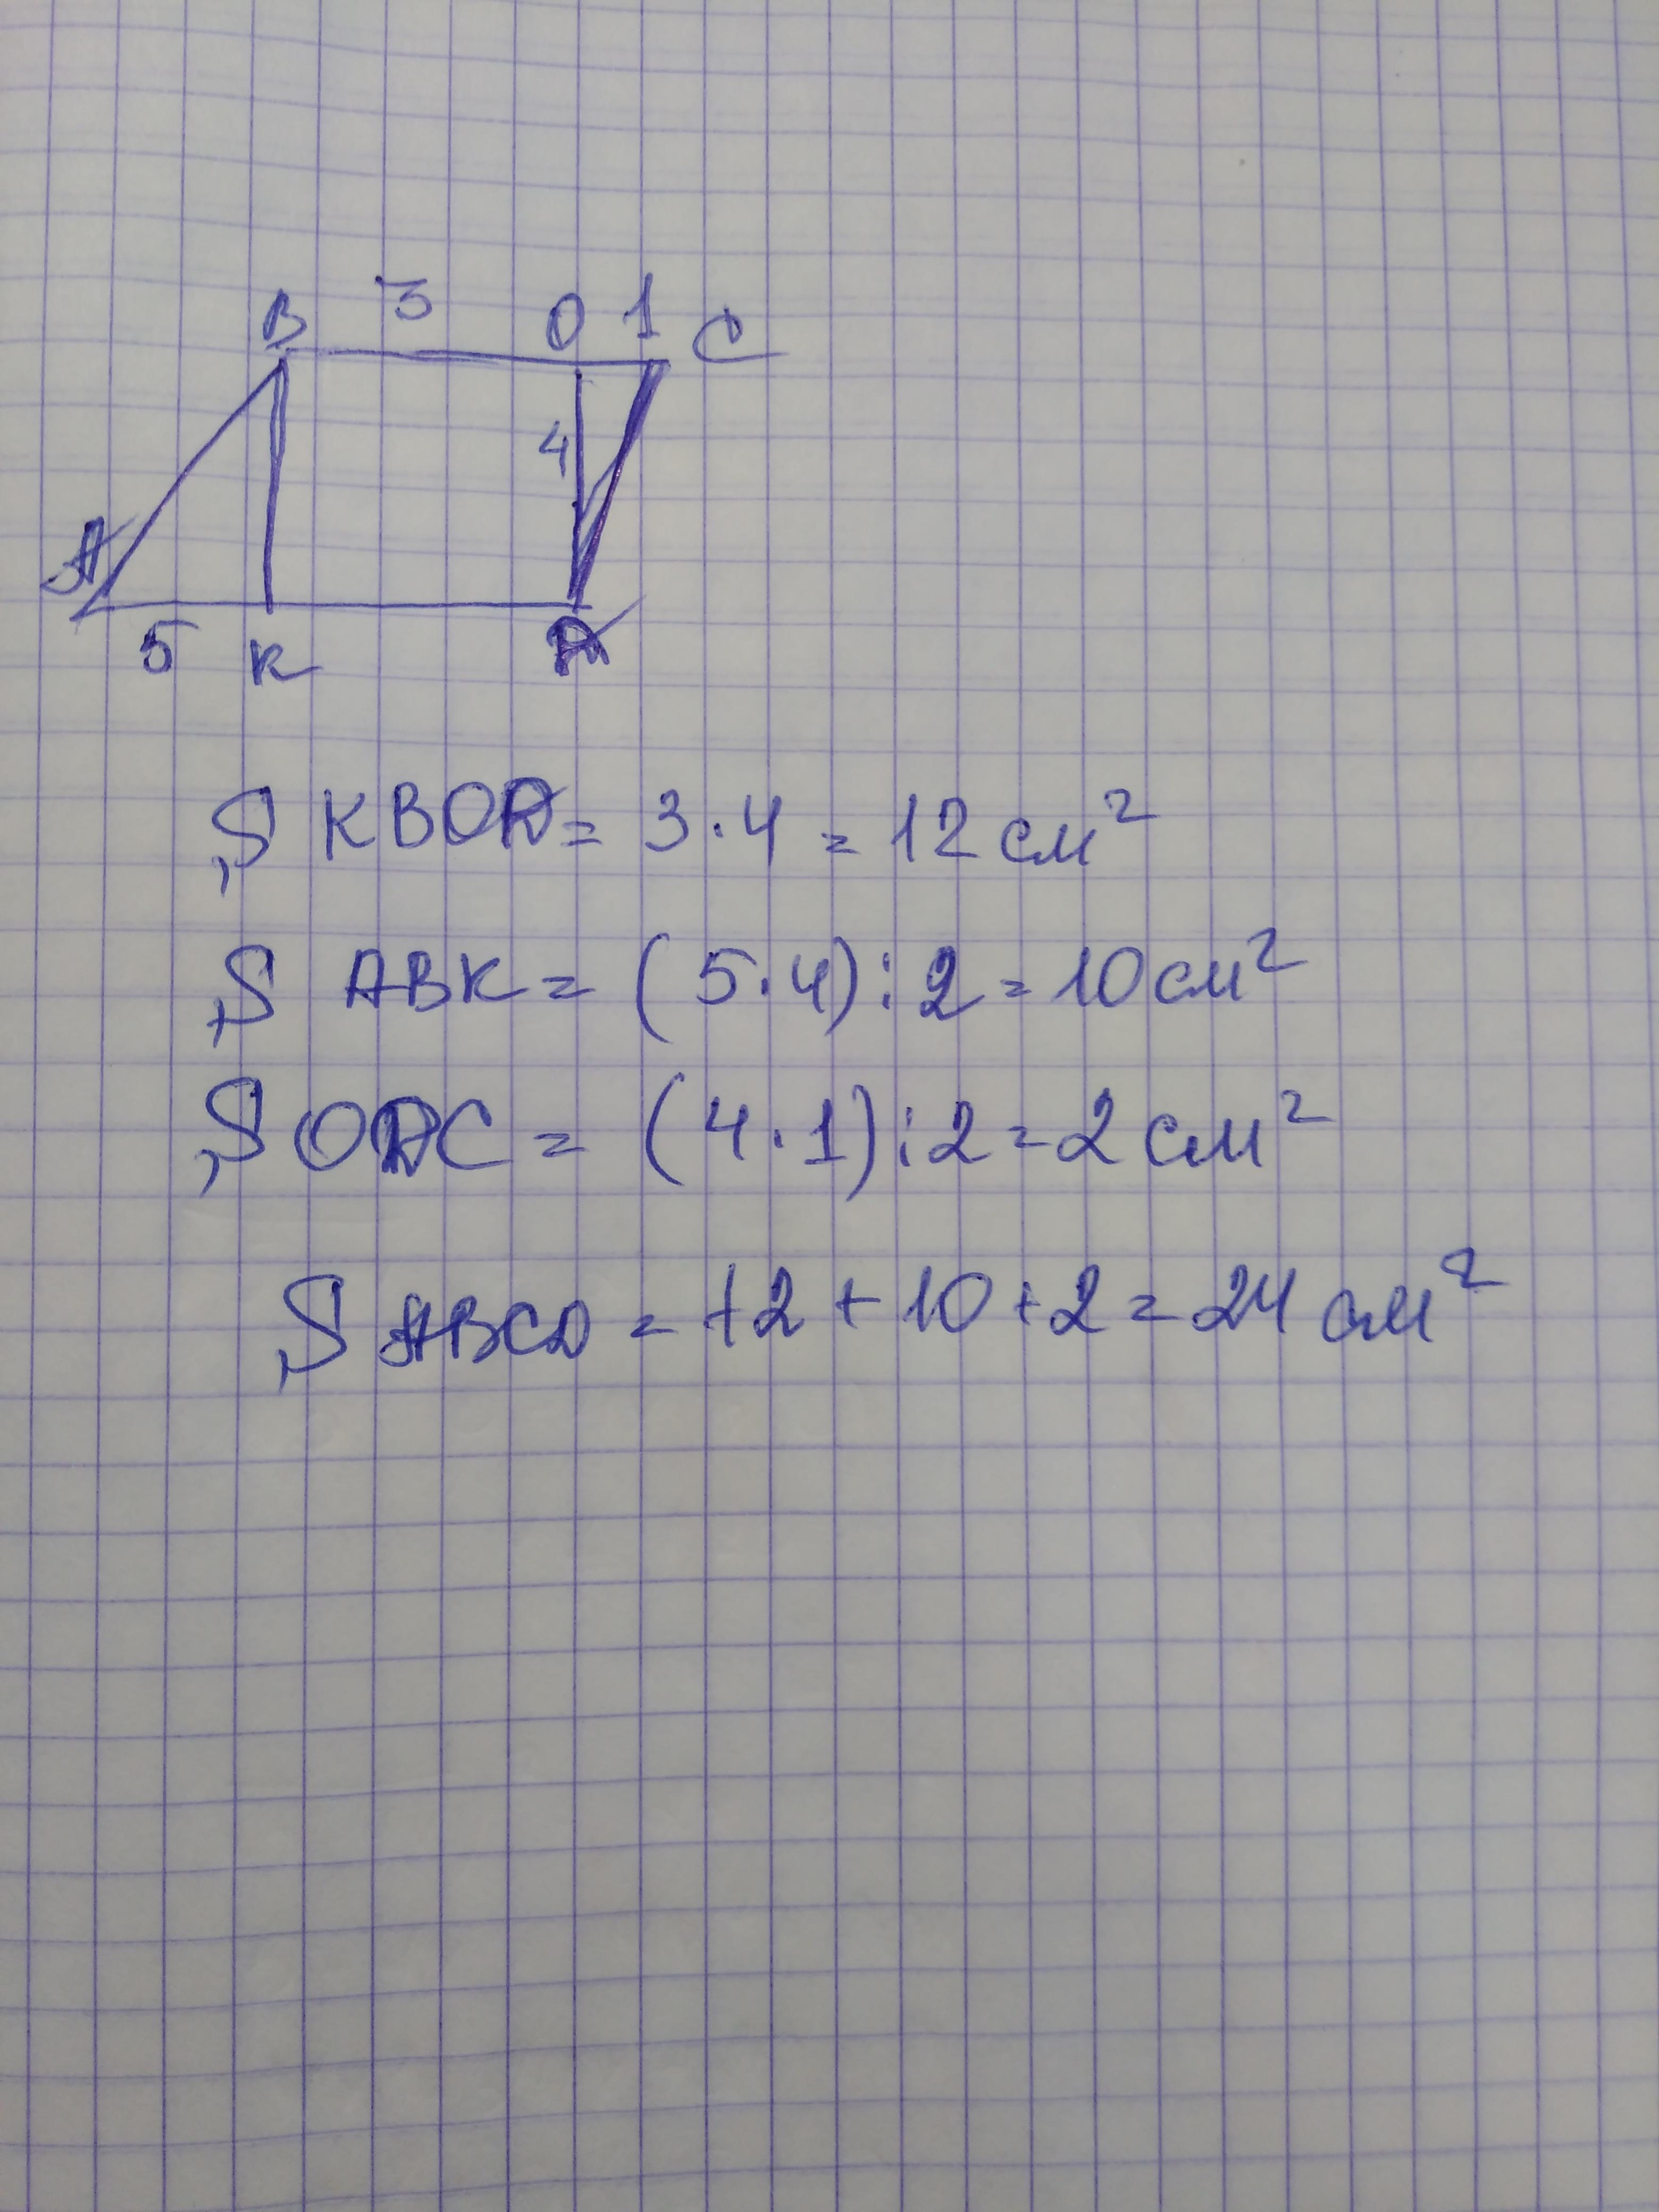 B 3 O 1 C
4
A
5 K D
S KBOD = 3 · 4 = 12 см²
S ABK = (5 · 4) : 2 = 10 см²
S ODC = (4 · 1) : 2 = 2 см²
S ABCD = 12 + 10 + 2 = 24 см²